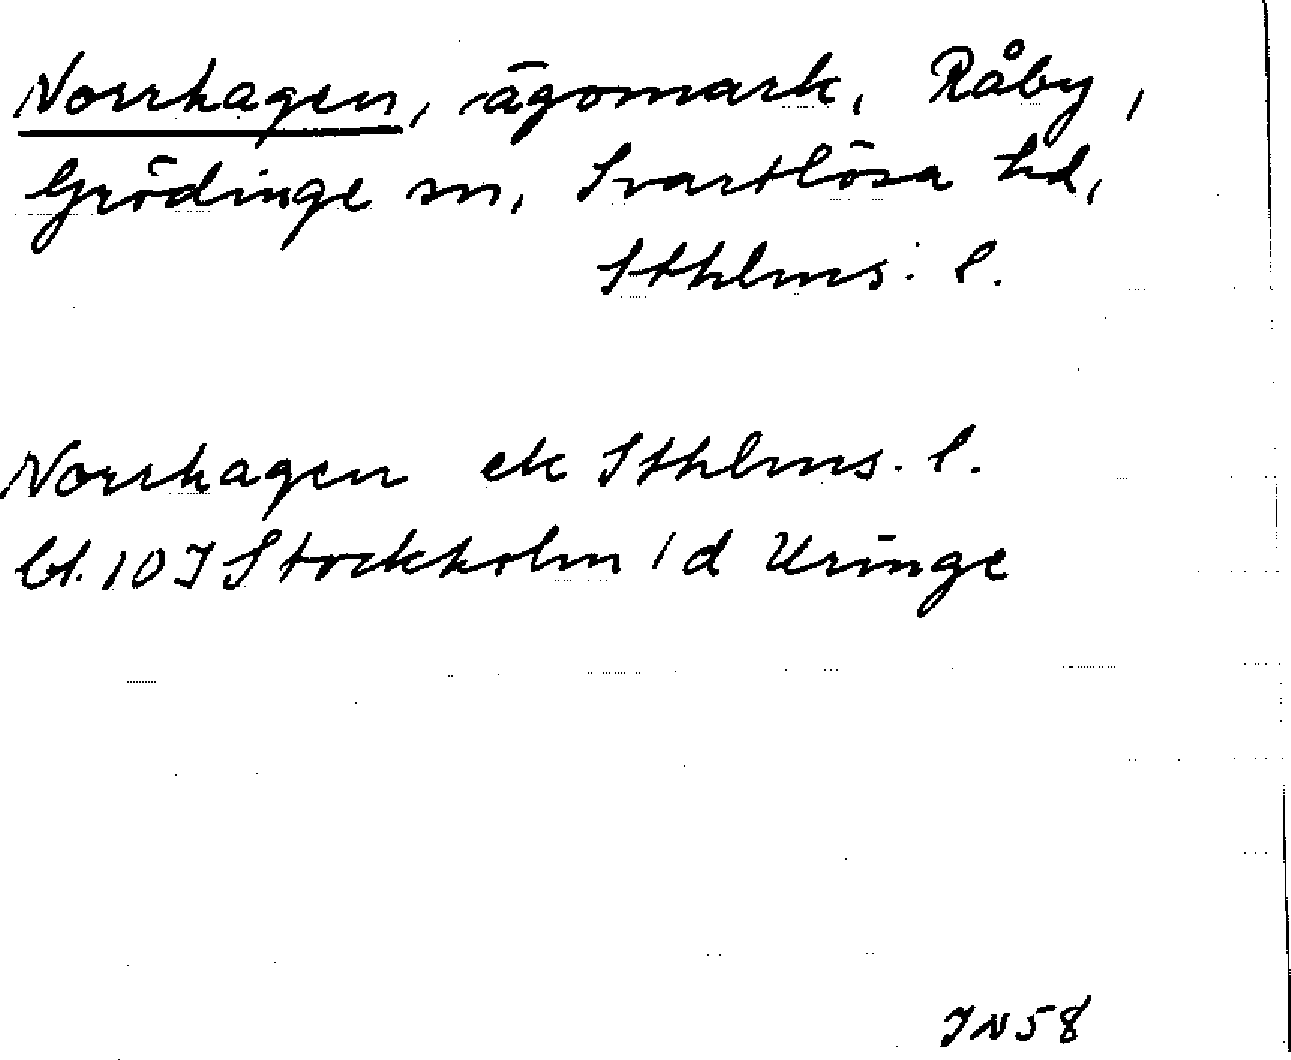 Norrhagen, ägomark, Råby,
Grödinge sn, Svartlösa hd,
Sthlms. l.
Norrhagen ek Sthlms. l.
bl. 10 I Stockholm 1 d Uringe
IN 58